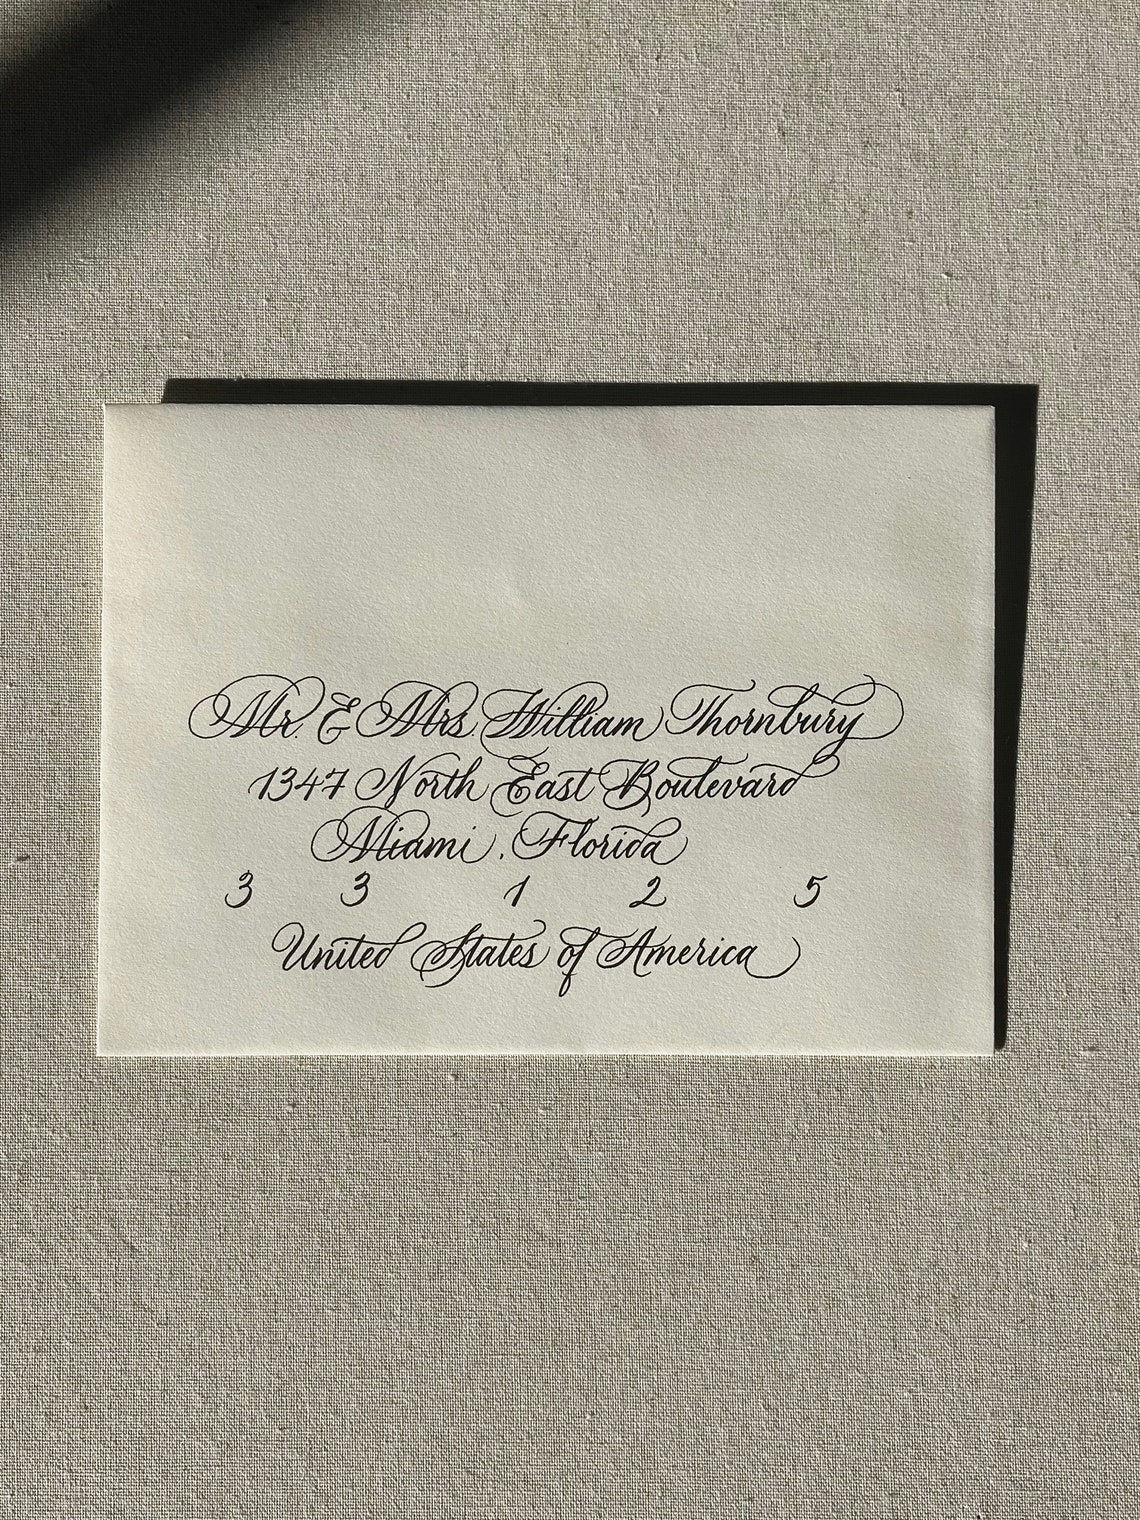 Mr. & Mrs. William Thornbury
1347 North East Boulevard
Miami, Florida
3 3 1 2 5
United States of America